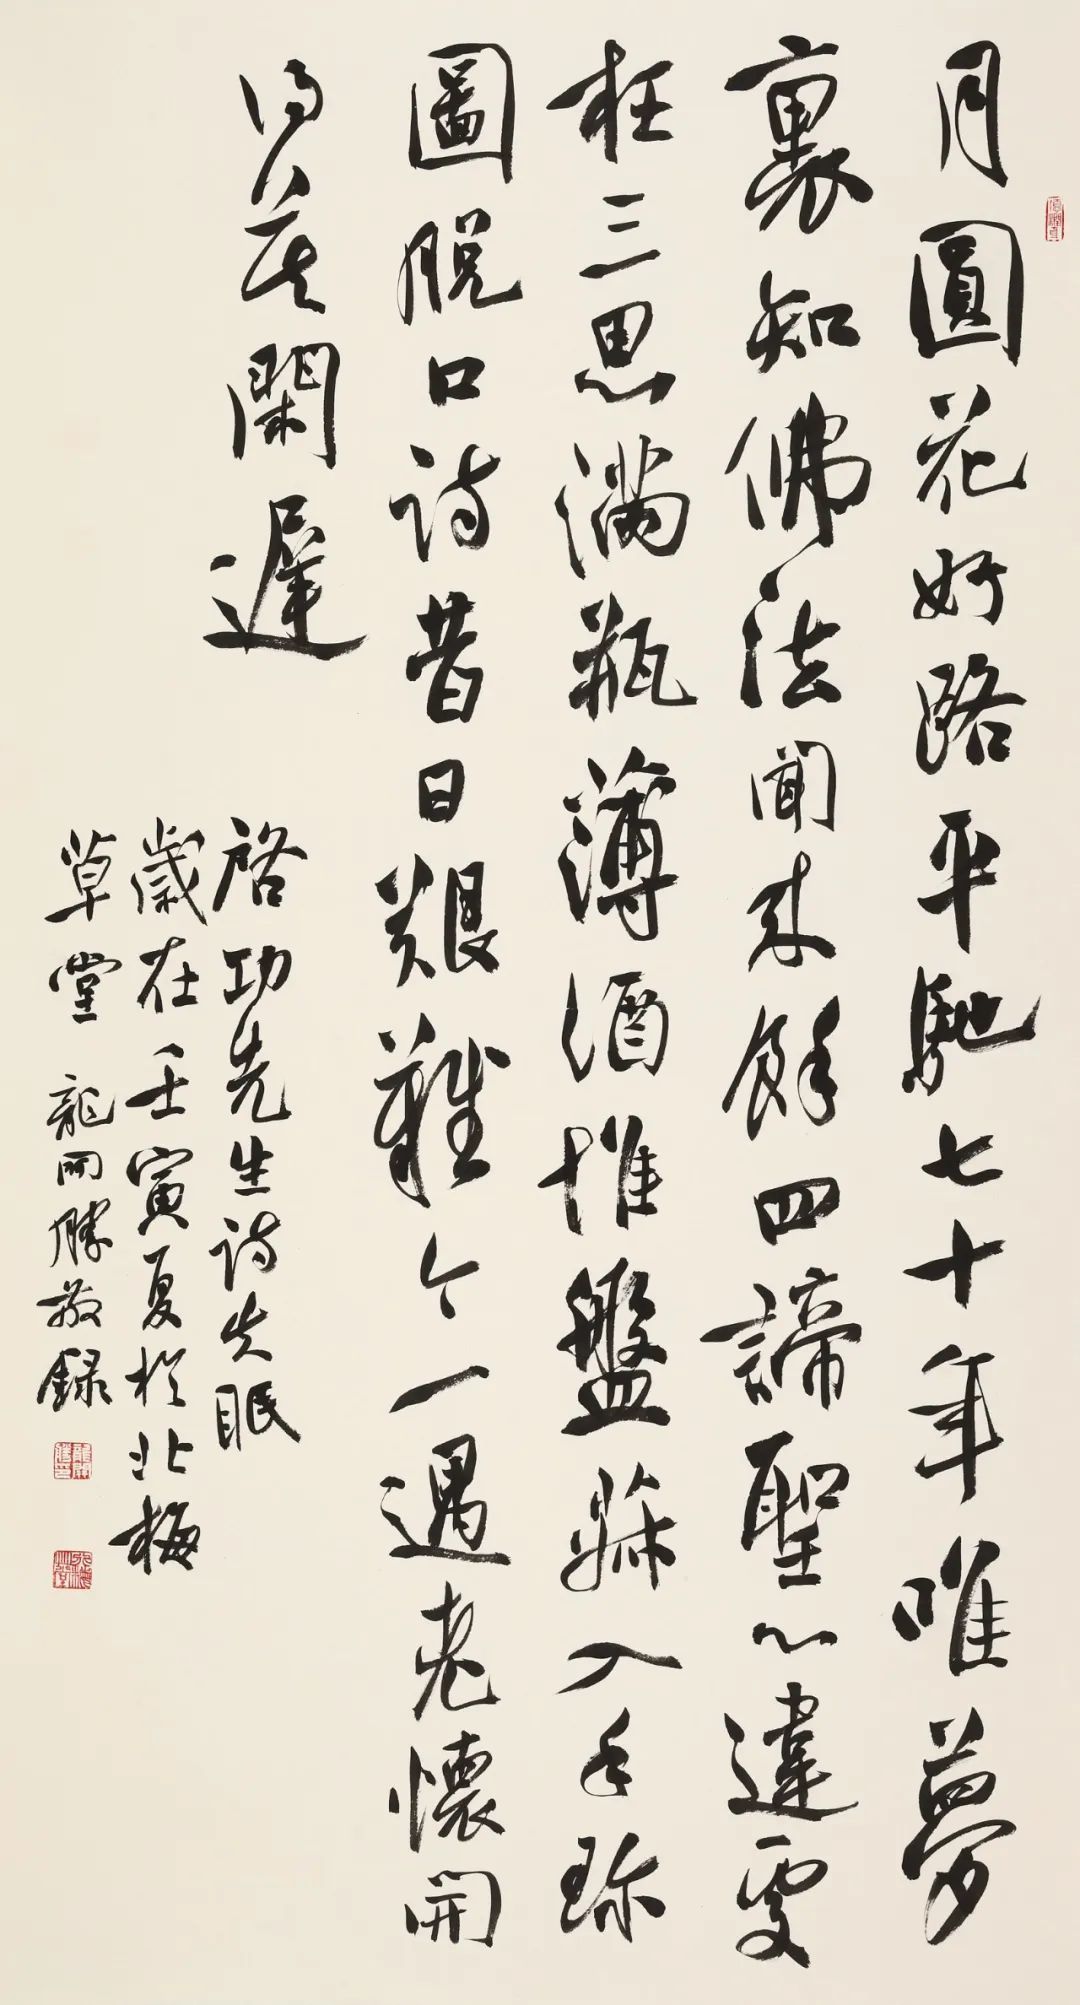 月圓花好路平馳七十年唯夢
裏知佛法聞來餘四諦聖心違處
枉三思满瓶薄酒堆盤蔬入手珍
圖脱口诗昔日艱難今一遇老懷開
得莫閑遲
启功先生诗失眠
歲在壬寅夏於北梅
草堂 龍開勝敬録